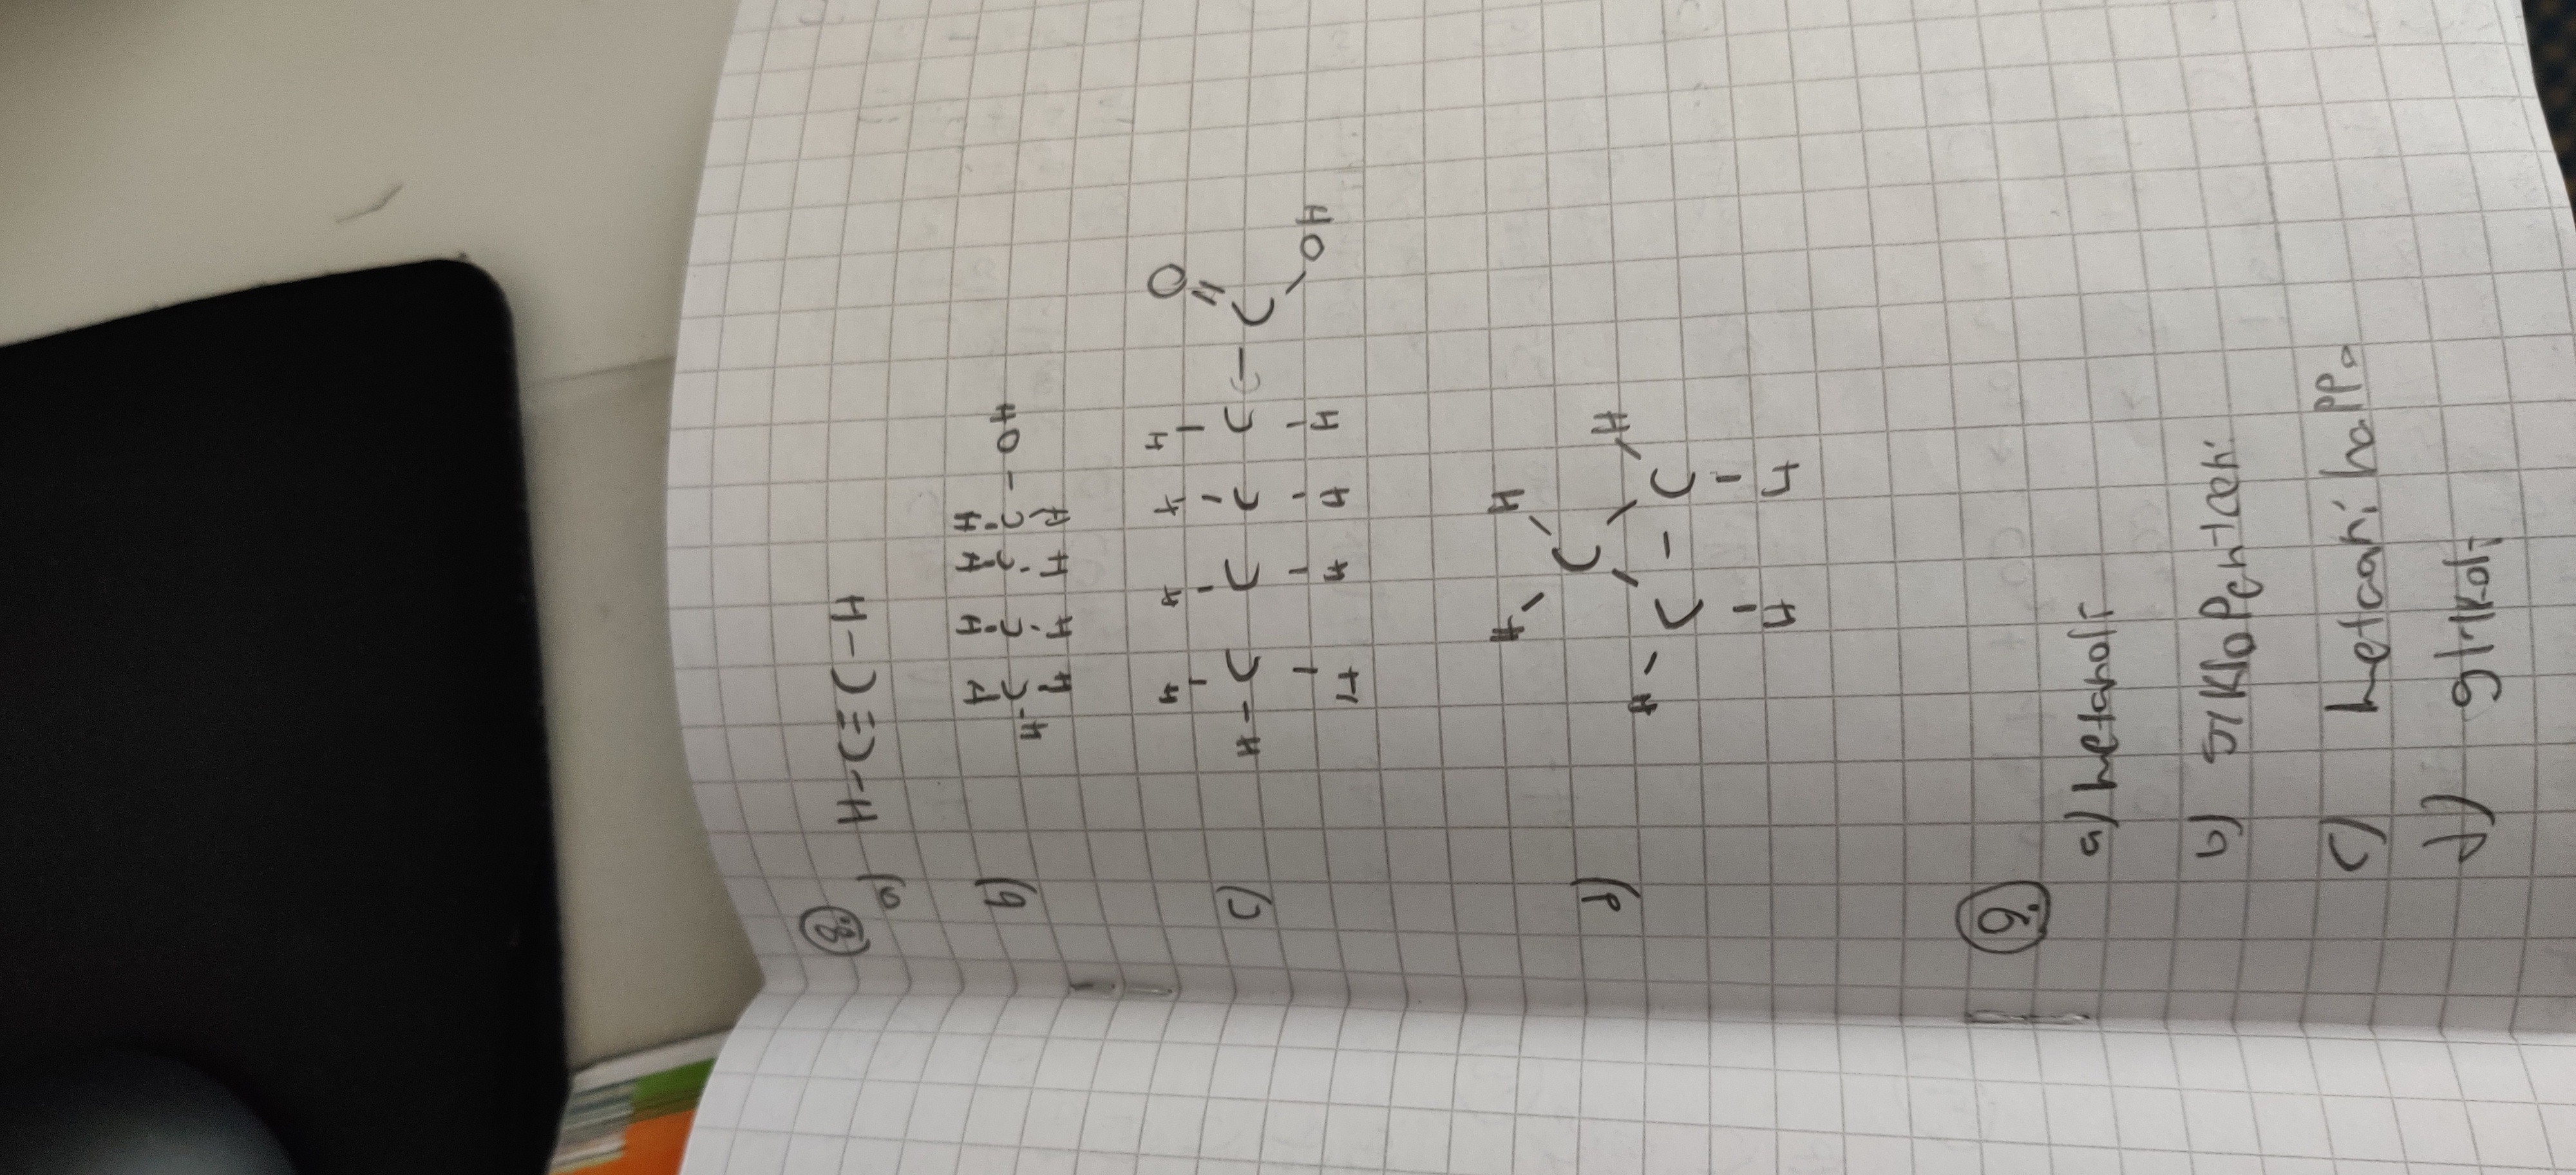 8.
a) H-C≡C-H
b) H H H H
H-C C C C-OH
H H H H
c) H H H H O
H-C C C C-C
H H H H OH
d) H H
C
H-C-C H
H H
9.
a) metanoli
b) syklopenteeni
c) metaanihappo
d) glykoli